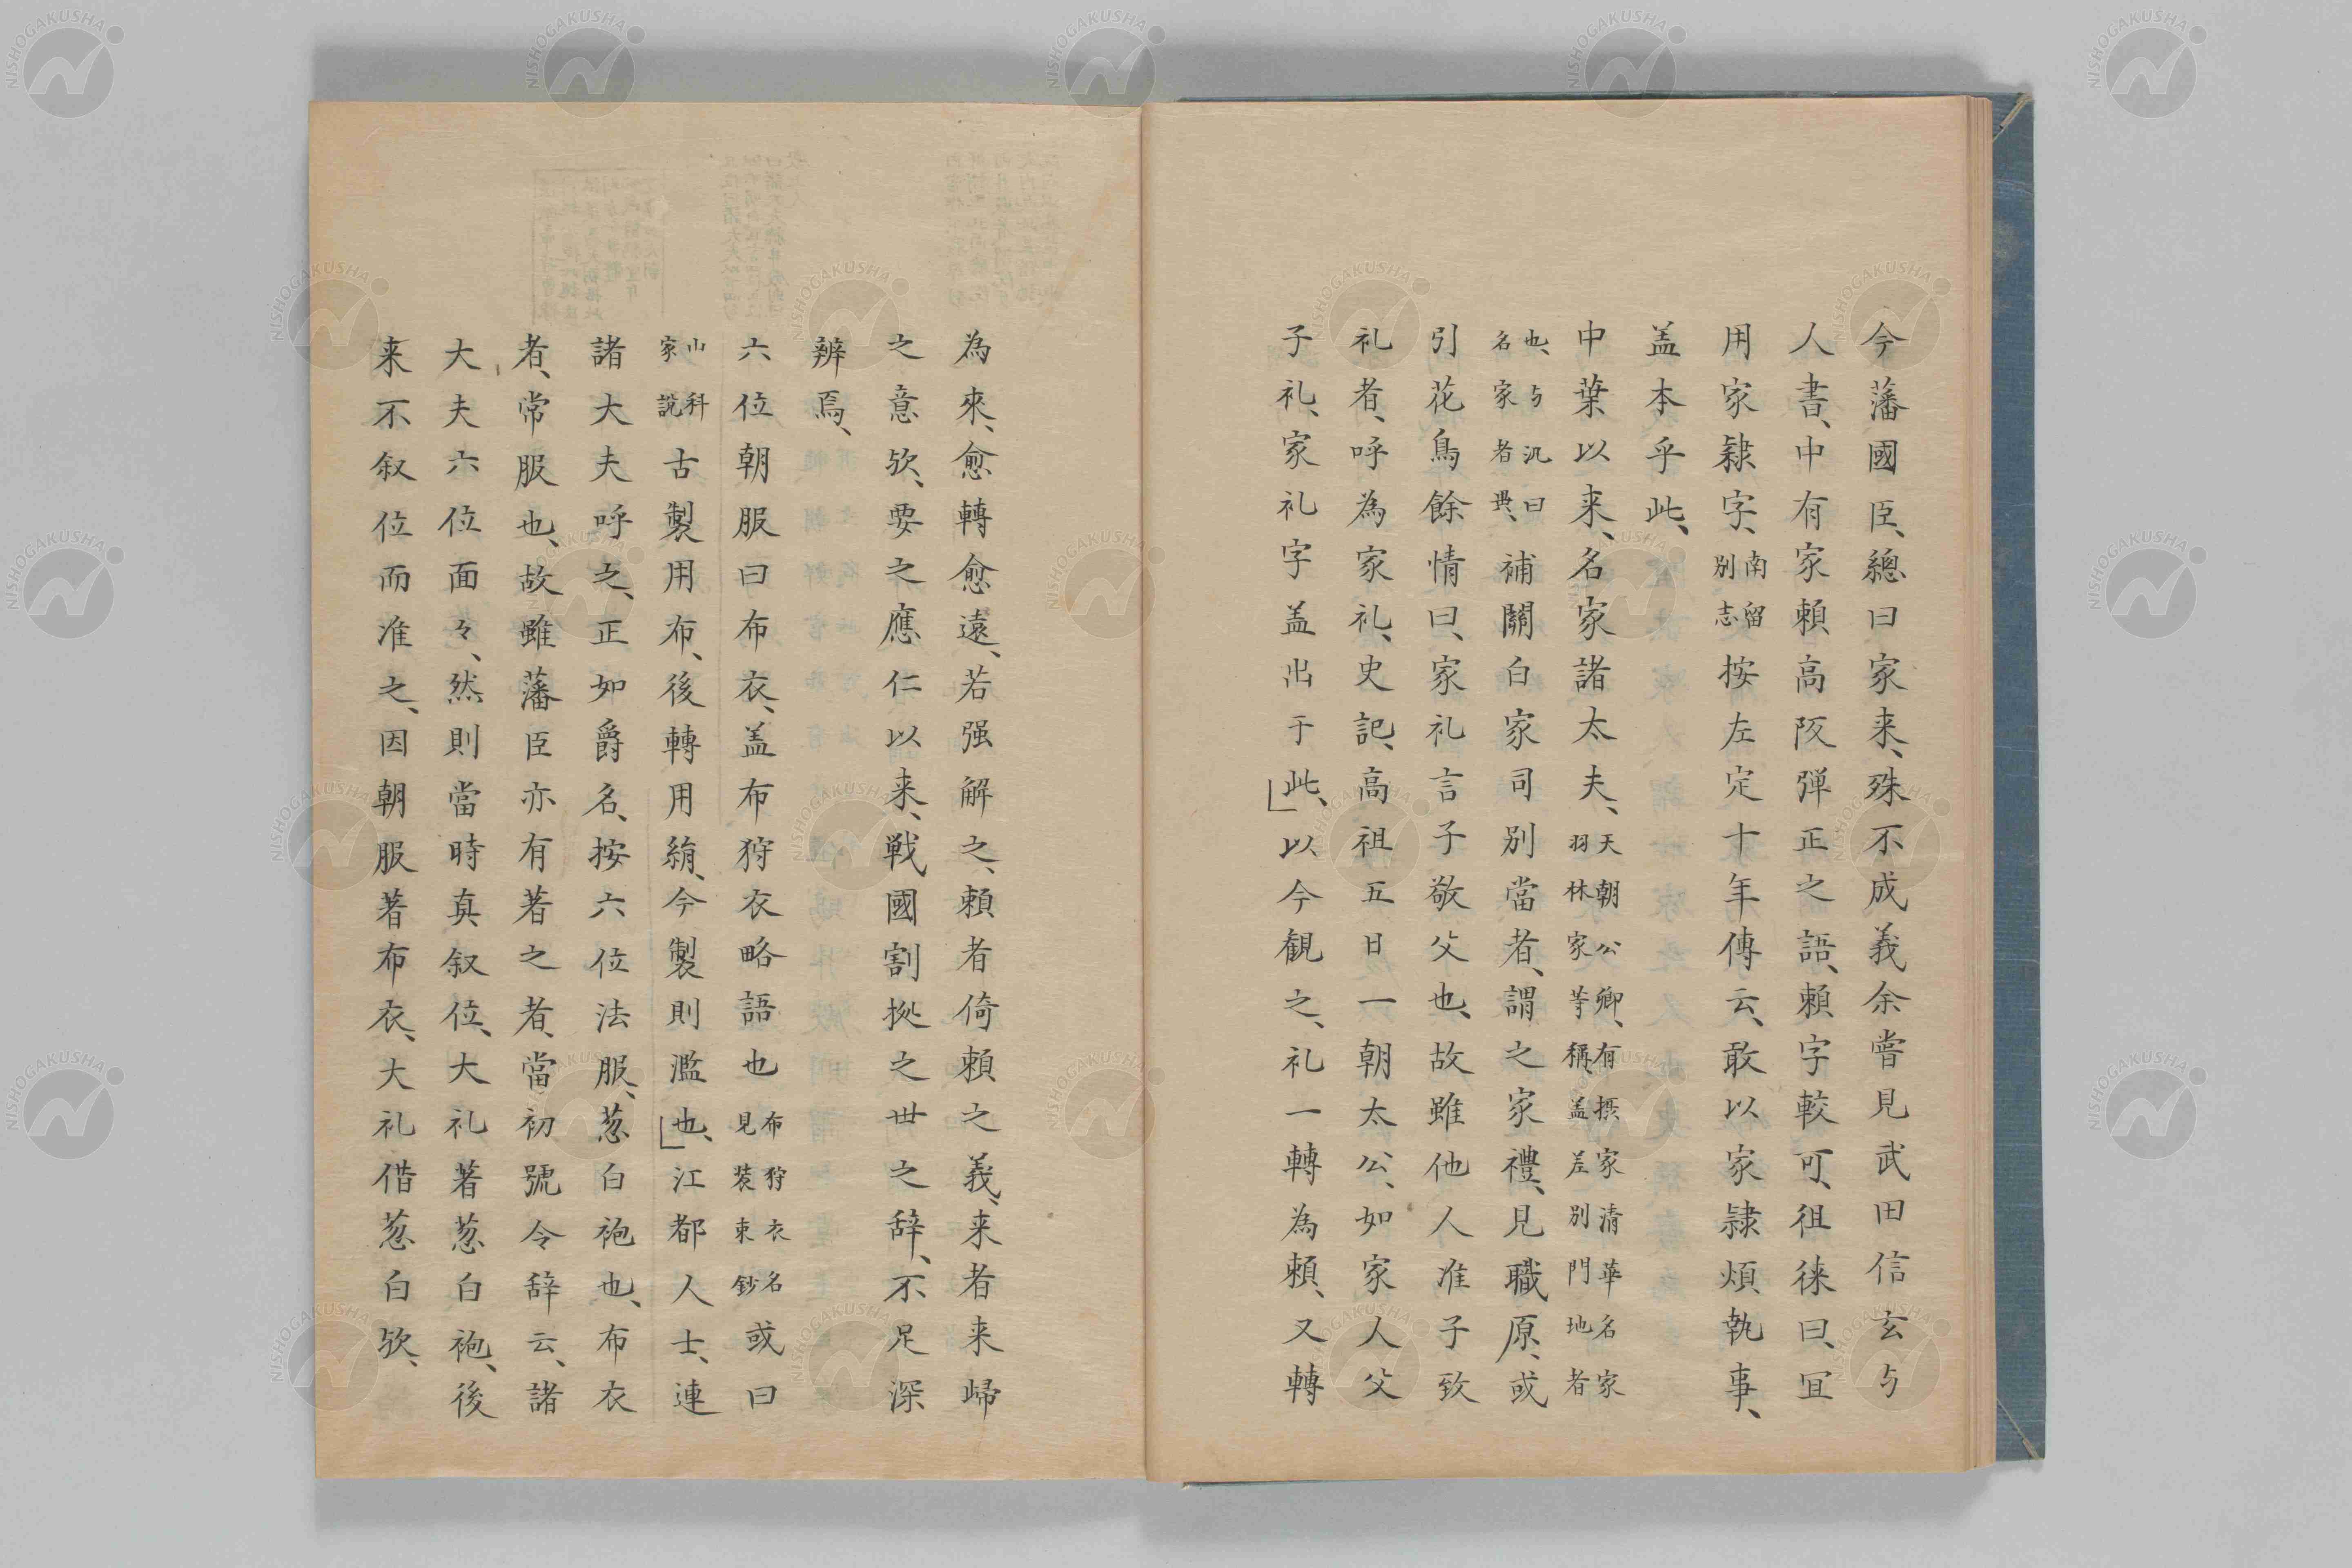 今藩國臣、總曰家来、殊不成義余嘗見武田信玄与
人書、中有家頼高阪弾正之語、頼字較可、徂徠曰、宜
用家隷字、南留別志按左定十年傳云、敢以家隷煩執事、
盖本乎此、
中葉以来、名家諸太夫、天朝公卿、有摂家清華名家羽林家等稱、盖差別門地者
也、与汎曰名家者異、補關白家司別當者、謂之家禮、見職原、或
引花鳥餘情曰、家礼言子敬父也、故雖他人准子致
礼者、呼為家礼、史記、高祖五日一朝太公、如家人父
子礼、家礼字盖出于此、」以今観之、礼一轉為頼、又轉
為來、愈轉愈遠、若强解之、頼者倚頼之義、来者来歸
之意欤、要之應仁以来、戦國割拠之世之辞、不足深
辨焉、
六位朝服曰布衣、盖布狩衣略語也布狩衣名見装束鈔或曰
山科家説古製用布、後轉用絹、今製則濫也、」江都人士、連
諸大夫呼之、正如爵名、按六位法服、葱白袍也、布衣
者、常服也、故雖藩臣亦有著之者、當初號令辞云、諸
大夫六位面々、然則當時真叙位、大礼著葱白袍、後
来不叙位而准之、因朝服著布衣、大礼借葱白欤、
NISHOGAKUSHA